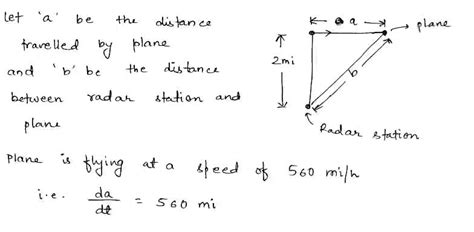 let 'a' be the distance
travelled by plane
and 'b' be the distance
between radar station and
plane
a
plane
2mi
b
Radar station
Plane is flying at a speed of 560 mi/h
i.e. da/dt = 560 mi